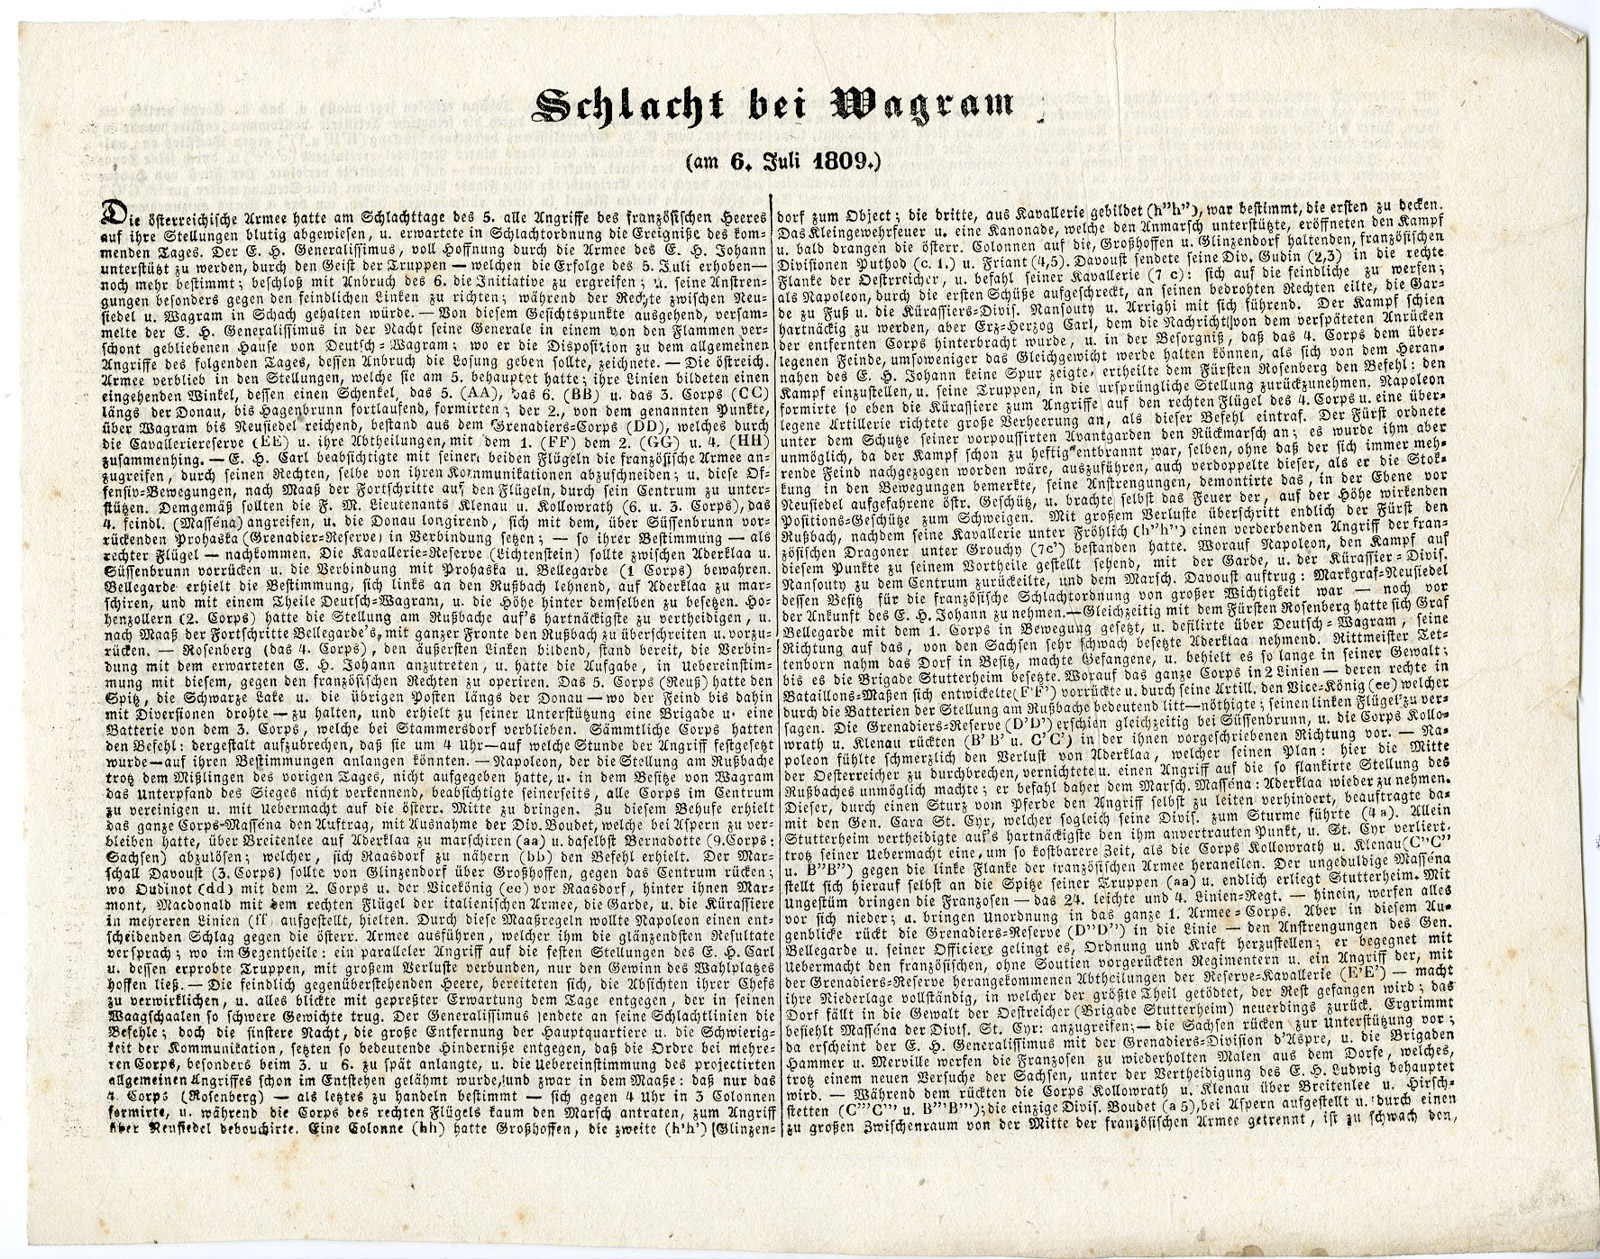 Schlacht bei Wagram
(am 6. Juli 1809.)
Die österreichische Armee hatte am Schlachttage des 5. alle Angriffe des französischen Heeres
auf ihre Stellungen blutig abgewiesen, u. erwartete in Schlachtordnung die Ereigniße des kom-
menden Tages. Der E. H. Generalissimus, voll Hoffnung durch die Armee des E. H. Johann
unterstützt zu werden, durch den Geist der Truppen — welchen die Erfolge des 5. Juli erhoben—
noch mehr bestimmt; beschloß mit Anbruch des 6. die Initiative zu ergreifen; u. seine Anstren-
gungen besonders gegen den feindlichen Linken zu richten; während der Rechte zwischen Neu-
siedel u. Wagram in Schach gehalten würde. — Von diesem Gesichtspunkte ausgehend, versam-
melte der E. H. Generalissimus in der Nacht seine Generale in einem von den Flammen ver-
schont gebliebenen Hause von Deutsch-Wagram; wo er die Disposition zu dem allgemeinen
Angriffe des folgenden Tages, dessen Anbruch die Losung geben sollte, zeichnete. — Die östreich.
Armee verblieb in den Stellungen, welche sie am 5. behauptet hatte; ihre Linien bildeten einen
eingehenden Winkel, dessen einen Schenkel, das 5. (AA), das 6. (BB) u. das 3. Corps (CC)
längs der Donau, bis Hagenbrunn fortlaufend, formirten; der 2., von dem genannten Punkte,
über Wagram bis Neusiedel reichend, bestand aus dem Grenadiers-Corps (DD), welches durch
die Cavalleriereserve (EE) u. ihre Abtheilungen, mit dem 1. (FF) dem 2. (GG) u. 4. (HH)
zusammenhing. — E. H. Carl beabsichtigte mit seinen beiden Flügeln die französische Armee an-
zugreifen, durch seinen Rechten, selbe von ihren Kommunikationen abzuschneiden; u. diese Of-
fensiv-Bewegungen, nach Maaß der Fortschritte auf den Flügeln, durch sein Centrum zu unter-
stützen. Demgemäß sollten die F. M. Lieutenants Klenau u. Kollowrath (6. u. 3. Corps), das
4. feindl. (Masséna) angreifen, u. die Donau longirend, sich mit dem, über Süssenbrunn vor-
rückenden Prohaska (Grenadier-Reserve) in Verbindung setzen; — so ihrer Bestimmung — als
rechter Flügel — nachkommen. Die Kavallerie-Reserve (Lichtenstein) sollte zwischen Aderklaa u.
Süssenbrunn vorrücken u. die Verbindung mit Prohaska u. Bellegarde (1 Corps) bewahren.
Bellegarde erhielt die Bestimmung, sich links an den Rußbach lehnend, auf Aderklaa zu mar-
schiren, und mit einem Theile Deutsch-Wagram, u. die Höhe hinter demselben zu besetzen. Ho-
henzollern (2. Corps) hatte die Stellung am Rußbache auf's hartnäckigste zu vertheidigen, u.
nach Maaß der Fortschritte Bellegarde's, mit ganzer Fronte den Rußbach zu überschreiten u. vorzu-
rücken. — Rosenberg (das 4. Corps), den äußersten Linken bildend, stand bereit, die Verbin-
dung mit dem erwarteten E. H. Johann anzutreten, u. hatte die Aufgabe, in Uebereinstim-
mung mit diesem, gegen den französischen Rechten zu operiren. Das 5. Corps (Reuß) hatte den
Spitz, die Schwarze Lake u. die übrigen Posten längs der Donau — wo der Feind bis dahin
mit Diversionen drohte — zu halten, und erhielt zu seiner Unterstützung eine Brigade u. eine
Batterie von dem 3. Corps, welche bei Stammersdorf verblieben. Sämmtliche Corps hatten
den Befehl: dergestalt aufzubrechen, daß sie um 4 Uhr—auf welche Stunde der Angriff festgesetzt
wurde—auf ihren Bestimmungen anlangen könnten. — Napoleon, der die Stellung am Rußbache
trotz dem Mißlingen des vorigen Tages, nicht aufgegeben hatte, u. in dem Besitze von Wagram
das Unterpfand des Sieges nicht verkennend, beabsichtigte seinerseits, alle Corps im Centrum
zu vereinigen u. mit Uebermacht auf die österr. Mitte zu dringen. Zu diesem Behufe erhielt
das ganze Corps-Masséna den Auftrag, mit Ausnahme der Div. Boudet, welche bei Aspern zu ver-
bleiben hatte, über Breitenlee auf Aderklaa zu marschiren (aa) u. daselbst Bernadotte (9. Corps:
Sachsen) abzulösen; welcher, sich Raasdorf zu nähern (bb) den Befehl erhielt. Der Mar-
schall Davoust (3. Corps) sollte von Glinzendorf über Großhoffen, gegen das Centrum rücken;
wo Oudinot (dd) mit dem 2. Corps u. der Vicekönig (ee) vor Raasdorf, hinter ihnen Mar-
mont, Macdonald mit dem rechten Flügel der italienischen Armee, die Garde, u. die Kürassiere
in mehreren Linien (ff aufgestellt, hielten. Durch diese Maaßregeln wollte Napoleon einen ent-
scheidenden Schlag gegen die österr. Armee ausführen, welcher ihm die glänzendsten Resultate
versprach; wo im Gegentheile: ein paralleler Angriff auf die festen Stellungen des E. H. Carl
u. dessen erprobte Truppen, mit großem Verluste verbunden, nur den Gewinn des Wahlplatzes
hoffen ließ. — Die feindlich gegenüberstehenden Heere, bereiteten sich, die Absichten ihrer Chefs
zu verwirklichen, u. alles blickte mit gepreßter Erwartung dem Tage entgegen, der in seinen
Waagschaalen so schwere Gewichte trug. Der Generalissimus sendete an seine Schlachtlinien die
Befehle; doch die finstere Nacht, die große Entfernung der Hauptquartiere u. die Schwierig-
keit der Kommunikation, setzten so bedeutende Hinderniße entgegen, daß die Ordre bei mehre-
ren Corps, besonders beim 3. u 6. zu spät anlangte, u. die Uebereinstimmung des projectirten
allgemeinen Angriffes schon im Entstehen gelähmt wurde, und zwar in dem Maaße: daß nur das
4 Corps (Rosenberg) — als letztes zu handeln bestimmt — sich gegen 4 Uhr in 3 Colonnen
formirte, u. während die Corps des rechten Flügels kaum den Marsch antraten, zum Angriff
über Neusiedel debouchirte. Eine Colonne (hh) hatte Großhoffen, die zweite (h'h') Glinzen-
dorf zum Object; die dritte, aus Kavallerie gebildet (h''h''), war bestimmt, die ersten zu decken.
Das Kleingewehrfeuer u. eine Kanonade, welche den Anmarsch unterstützte, eröffneten den Kampf
u. bald drangen die österr. Colonnen auf die, Großhoffen u. Glinzendorf haltenden, französischen
Divisionen Puthod (c. 1.) u. Friant (4,5). Davoust sendete seine Div. Gudin (2,3) in die rechte
Flanke der Oestrreicher, u. befahl seiner Kavallerie (7 c): sich auf die feindliche zu werfen;
als Napoleon, durch die ersten Schüße aufgeschreckt, an seinen bedrohten Rechten eilte, die Gar-
de zu Fuß u. die Kürassiers-Divis. Nansouty u. Arrighi mit sich führend. Der Kampf schien
hartnäckig zu werden, aber Erz-Herzog Carl, dem die Nachricht von dem verspäteten Anrücken
der entfernten Corps hinterbracht wurde, u. in der Besorgniß, daß das 4. Corps dem über-
legenen Feinde, umsoweniger das Gleichgewicht werde halten können, als sich von dem Heran-
nahen des E. H. Johann keine Spur zeigte, ertheilte dem Fürsten Rosenberg den Befehl: den
Kampf einzustellen, u. seine Truppen, in die ursprüngliche Stellung zurückzunehmen. Napoleon
formirte so eben die Kürassiere zum Angriffe auf den rechten Flügel des 4. Corps u. eine über-
legene Artillerie richtete große Verheerung an, als dieser Befehl eintraf. Der Fürst ordnete
unter dem Schutze seiner vorpoussirten Avantgarden den Rückmarsch an; es wurde ihm aber
unmöglich, da der Kampf schon zu heftig entbrannt war, selben, ohne daß der sich immer meh-
rende Feind nachgezogen worden wäre, auszuführen, auch verdoppelte dieser, als er die Stok-
kung in den Bewegungen bemerkte, seine Anstrengungen, demontirte das, in der Ebene vor
Neusiedel aufgefahrene östr. Geschütz, u. brachte selbst das Feuer der, auf der Höhe wirkenden
Positions-Geschütze zum Schweigen. Mit großem Verluste überschritt endlich der Fürst den
Rußbach, nachdem seine Kavallerie unter Fröhlich (h''h'') einen verderbenden Angriff der fran-
zösischen Dragoner unter Grouchy (7c') bestanden hatte. Worauf Napoleon, den Kampf auf
diesem Punkte zu seinem Vortheile gestellt sehend, mit der Garde, u. der Kürassier-Divis.
Nansouty zu dem Centrum zurückeilte, und dem Marsch. Davoust auftrug: Markgraf-Neusiedel
dessen Besitz für die französische Schlachtordnung von großer Wichtigkeit war — noch vor
der Ankunft des E. H. Johann zu nehmen.—Gleichzeitig mit dem Fürsten Rosenberg hatte sich Graf
Bellegarde mit dem 1. Corps in Bewegung gesetzt, u. defilirte über Deutsch-Wagram, seine
Richtung auf das, von den Sachsen sehr schwach besetzte Aderklaa nehmend. Rittmeister Tet-
tenborn nahm das Dorf in Besitz, machte Gefangene, u. behielt es so lange in seiner Gewalt;
bis es die Brigade Stutterheim besetzte. Worauf das ganze Corps in 2 Linien — deren rechte in
Bataillons-Maßen sich entwickelte (F'F') vorrückte u. durch seine Artill. den Vice-König (ee) welcher
durch die Batterien der Stellung am Rußbache bedeutend litt—nöthigte; seinen linken Flügel zu ver-
sagen. Die Grenadiers-Reserve (D'D') erschien gleichzeitig bei Süssenbrunn, u. die Corps Kollo-
wrath u. Klenau rückten (B'B' u. C'C') in der ihnen vorgeschriebenen Richtung vor. — Na-
poleon fühlte schmerzlich den Verlust von Aderklaa, welcher seinen Plan: hier die Mitte
der Oesterreicher zu durchbrechen, vernichtete u. einen Angriff auf die so flankirte Stellung des
Rußbaches unmöglich machte; er befahl daher dem Marsch. Masséna: Aderklaa wieder zu nehmen.
Dieser, durch einen Sturz vom Pferde den Angriff selbst zu leiten verhindert, beauftragte da-
mit den Gen. Cara St. Cyr, welcher sogleich seine Divis. zum Sturme führte (4a). Allein
Stutterheim vertheidigte auf's hartnäckigste den ihm anvertrauten Punkt, u. St. Cyr verliert,
trotz seiner Uebermacht eine, um so kostbarere Zeit, als die Corps Kollowrath u. Klenau (C''C''
u. B''B'') gegen die linke Flanke der französischen Armee heraneilen. Der ungeduldige Masséna
stellt sich hierauf selbst an die Spitze seiner Truppen (aa) u. endlich erliegt Stutterheim. Mit
Ungestüm bringen die Franzosen — das 24. leichte und 4. Linien-Regt. — hinein, werfen alles
vor sich nieder; u. bringen Unordnung in das ganze 1. Armee-Corps. Aber in diesem Au-
genblicke rückt die Grenadiers-Reserve (D''D'') in die Linie — den Anstrengungen des Gen.
Bellegarde u. seiner Officiere gelingt es, Ordnung und Kraft herzustellen; er begegnet mit
Uebermacht den französischen, ohne Soutien vorgerückten Regimentern u. ein Angriff der, mit
der Grenadiers-Reserve herangekommenen Abtheilungen der Reserve-Kavallerie (E'E') — macht
ihre Niederlage vollständig, in welcher der größte Theil getödtet, der Rest gefangen wird; das
Dorf fällt in die Gewalt der Oestreicher (Brigade Stutterheim) neuerdings zurück. Ergrimmt
befiehlt Masséna der Divis. St. Cyr: anzugreifen;— die Sachsen rücken zur Unterstützung vor;
da erscheint der E. H. Generalissimus mit der Grenadiers-Division d'Aspre, u. die Brigaden
Hammer u. Merville werfen die Franzosen zu wiederholten Malen aus dem Dorfe, welches,
trotz einem neuen Versuche der Sachsen, unter der Vertheidigung des E. H. Ludwig behauptet
wird. — Während dem rückten die Corps Kollowrath u. Klenau über Breitenlee u. Hirsch-
stetten (C'''C''' u. B'''B'''); die einzige Divis. Boudet (a 5), bei Aspern aufgestellt u. durch einen
zu großen Zwischenraum von der Mitte der französischen Armee getrennt, ist zu schwach den,